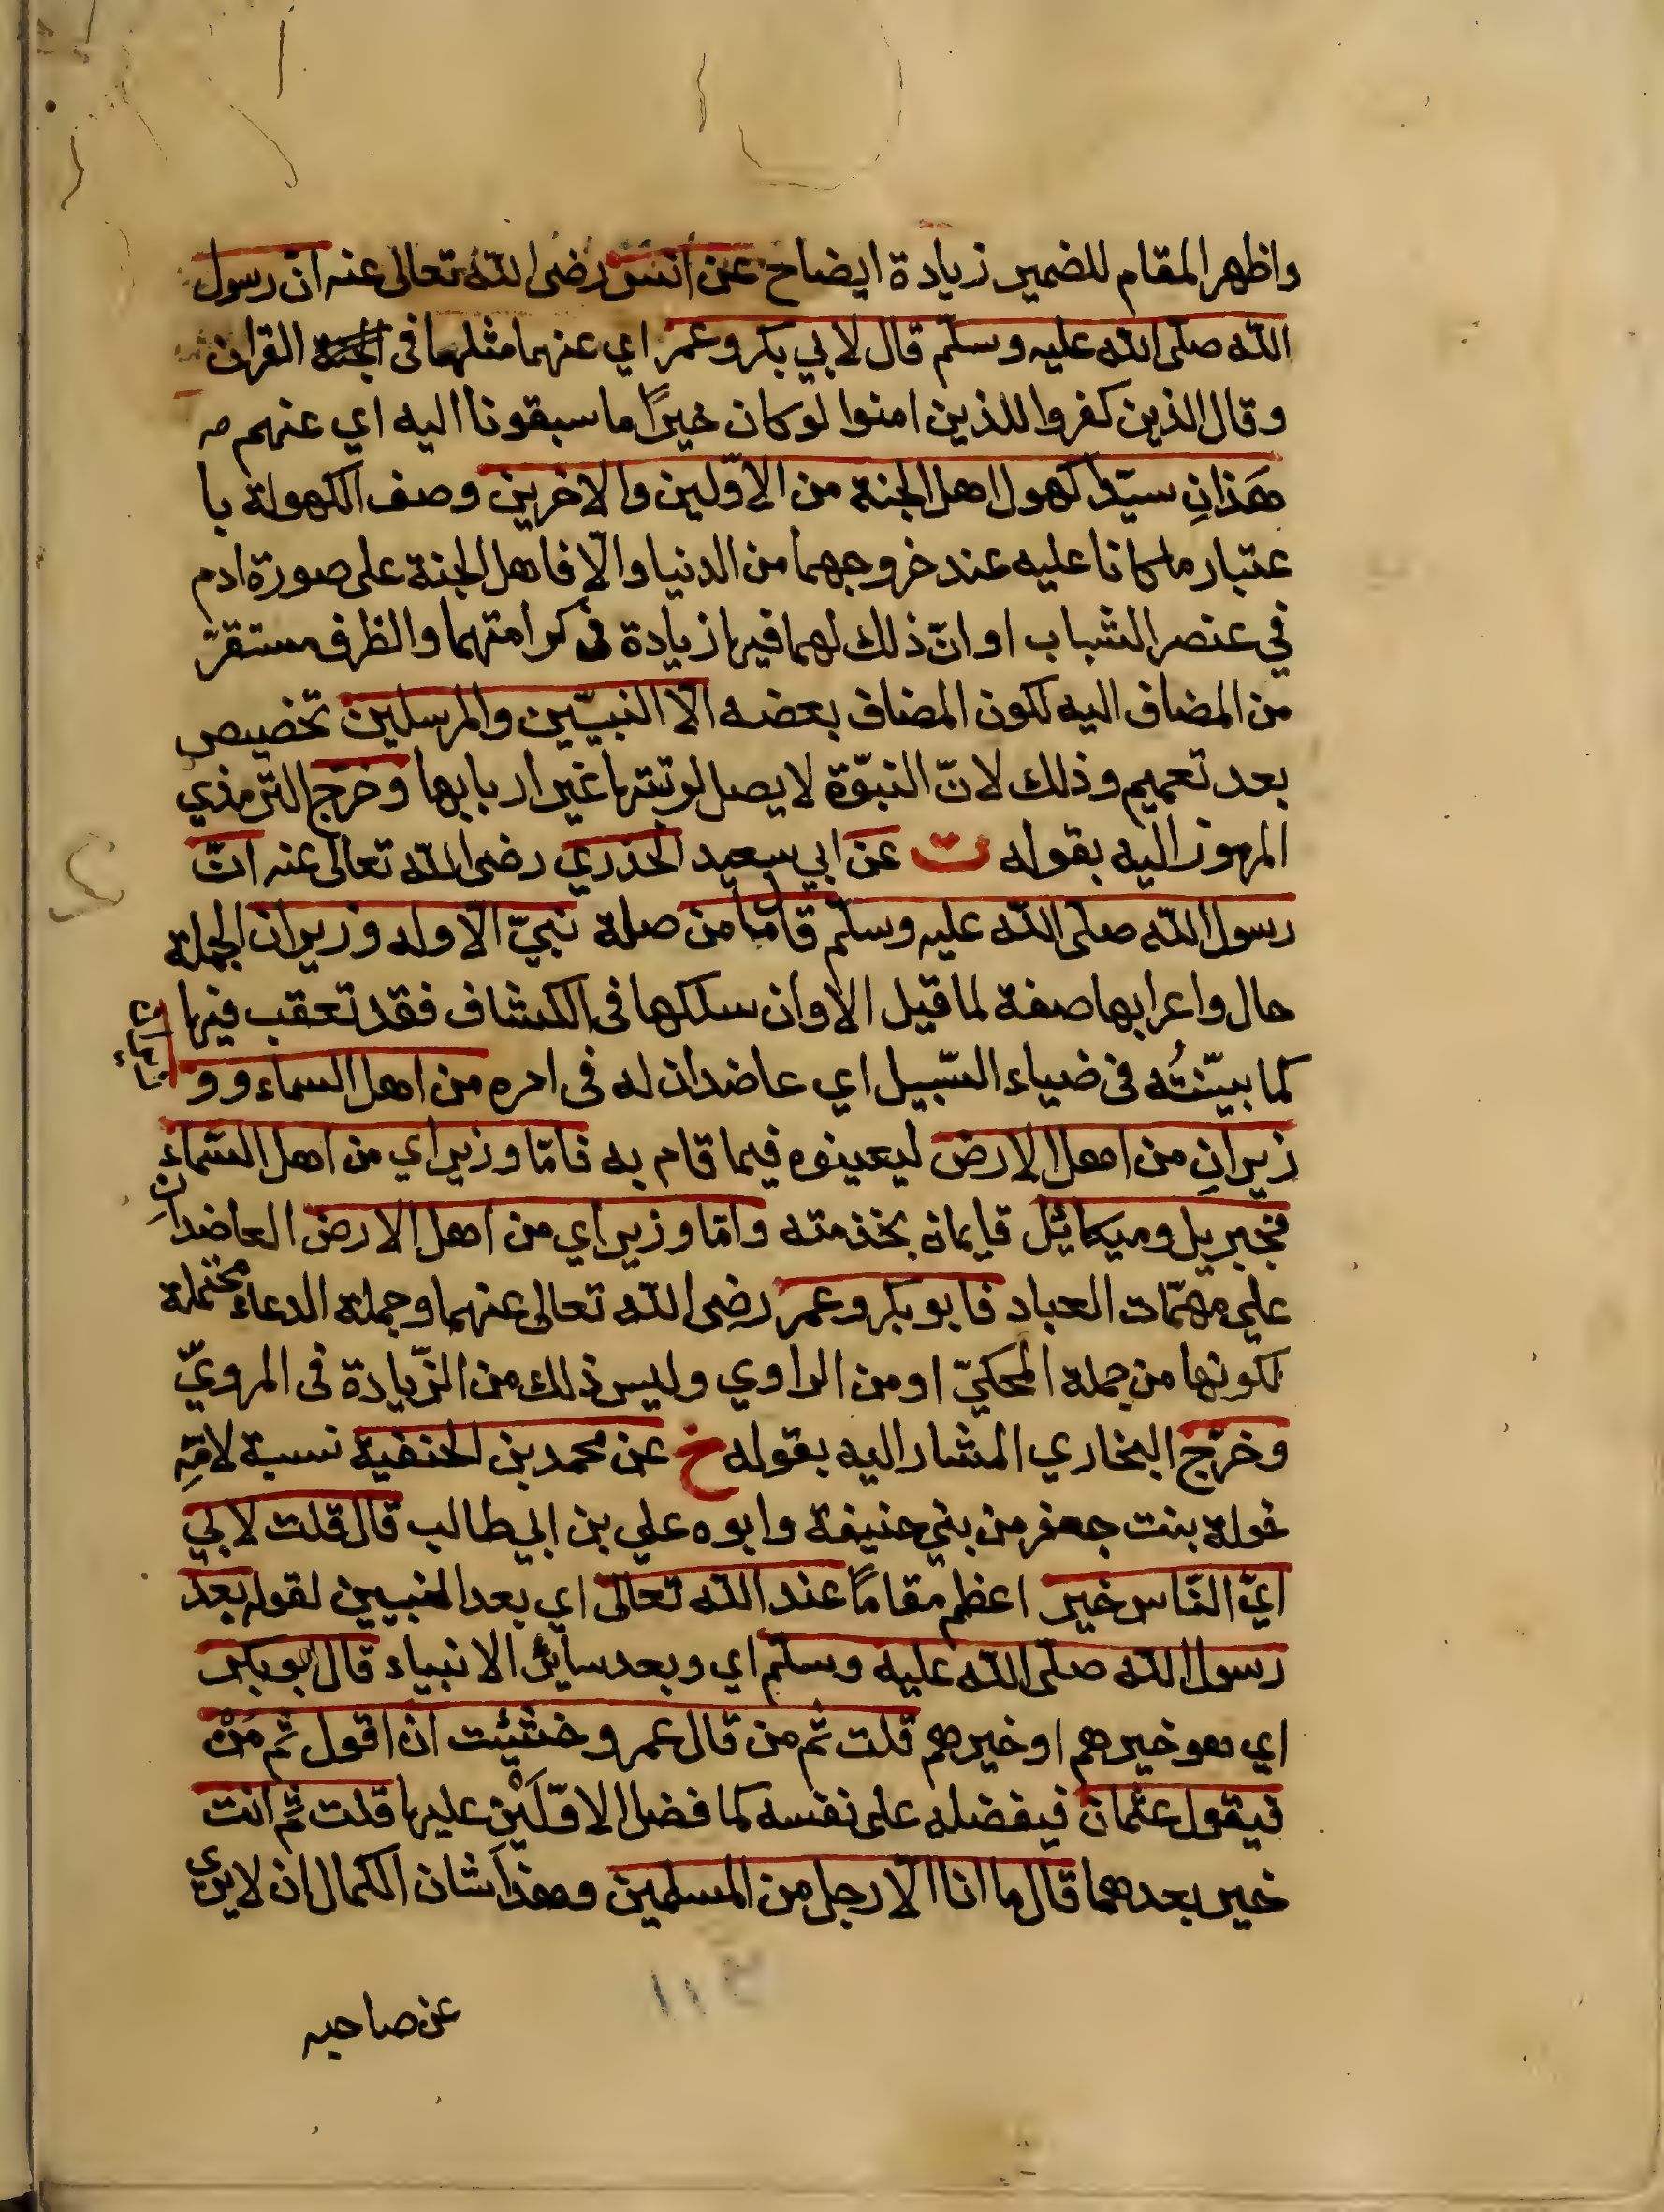 واظهر المقام للضمير زيادة ايضاح عن انس رضى الله تعالى عنه ان رسول
الله صلى الله عليه وسلم قال لابي بكر وعمر اي عنهما مثلها فى القران
وقال الذين كفروا للذين امنوا لو كان خيرًا ما سبقونا اليه اي عنهم
هَذانِ سيّدا كهول اهل الجنة من الاوّلين والاخرين وصف الكهولة با
عتبار ما كانا عليه عند خروجهما من الدنيا والّا فاهل الجنة على صورة ادم
في عنصر الشباب او انّ ذلك لهما فيها زيادة فى كرامتهما والظرف مستقرّ
من المضاف اليه لكون المضاف بعضه الا النبيّين والمرسلين تخصيص
بعد تعميم وذلك لانّ النبوّة لا يصل لرتبتها غير اربابها وخرّج الترمذي
المرموز اليه بقوله ت عن ابي سعيد الخدري رضى الله تعالى عنه انّ
رسول الله صلى الله عليه وسلّم قال ما من صلة نبيّ الّا وله وزيران الجملة
حال واعرابها صفة لما قيل الا وان سلكها فى الكشاف فقد تعقب فيها
كما بيّنتُه فى ضياء السّبيل اي عاضدان له فى امره من اهل السماء و و
زيرانِ من اهل الارض ليعينوه فيما قام به فامّا وزيراي من اهل السّماء
فجبريل وميكائيل قايمان بخذمته وامّا وزيراي من اهل الارض العاضدانِ
علي مهمّات العباد فابو بكر وعمر رضى الله تعالى عنهما وجملة الدعاء محتملة
لكونها من جملة المحكيّ او من الراوي وليس ذلك من الزّيادة فى المرويّ
وخرّج البخاري المشار اليه بقوله خ عن محمد بن الحنفية نسبة لامّهِ
خولة بنت جعفر من بني حنيفة وابوه علي بن ابي طالب قال قلت لابي
ايّ النّاس خير اعظم مقامًا عند الله تعالى اي بعد النبيين لقوله بعد
رسول الله صلّى الله عليه وسلّم اي وبعد سائر الانبياء قال ابو بكر
اي هو خيرهم او خيرهم قلت ثم من قال عمر وخشيت ان اقول ثم مَنْ
فيقول عثمان فيفضله على نفسه كما فضل الاوّلَيْن عليها قلت ثم انت
خير بعدهما قال ما انا الّا رجل من المسلمين وهذا شان الكمال ان لا يرى
عن صاحبه